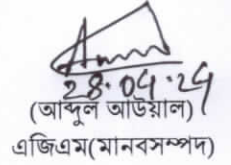 28.04.24
(আব্দুল আউয়াল)
এজিএম(মানবসম্পদ)